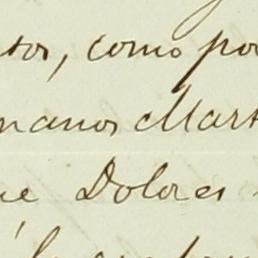 tos, como por
manos Mart
ue Dolores